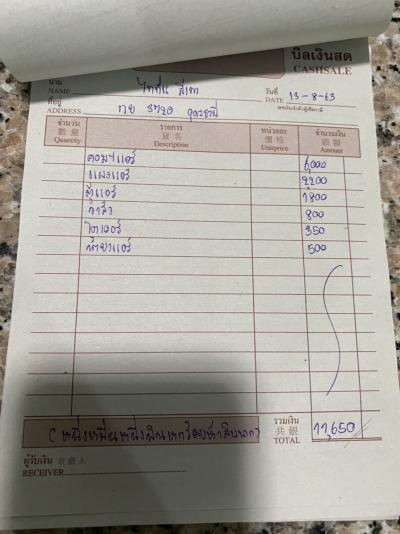 บิลเงินสด
CASHSALE
นาม
NAME ไททัน สีเทา
วันที่
DATE 13-8-63
ที่อยู่
ADDRESS กย 3720 อุดรธานี
เลขประจำตัวผู้เสียภาษี
จำนวน รายการ หน่วยละ จำนวนเงิน
數量 貨名 價格 銀額
Quantity Description Unitprice Amount
คอมฯแอร์ 6,000
แผงแอร์ 2,200
ตู้แอร์ 1800
800
ไดเออร์ 350
น้ำยาแอร์ 500
(หนึ่งหมื่นหนึ่งพันหกร้อยห้าสิบบาท) รวมเงิน 11,650
共銀
TOTAL
ผู้รับเงิน 收銀人
RECEIVER